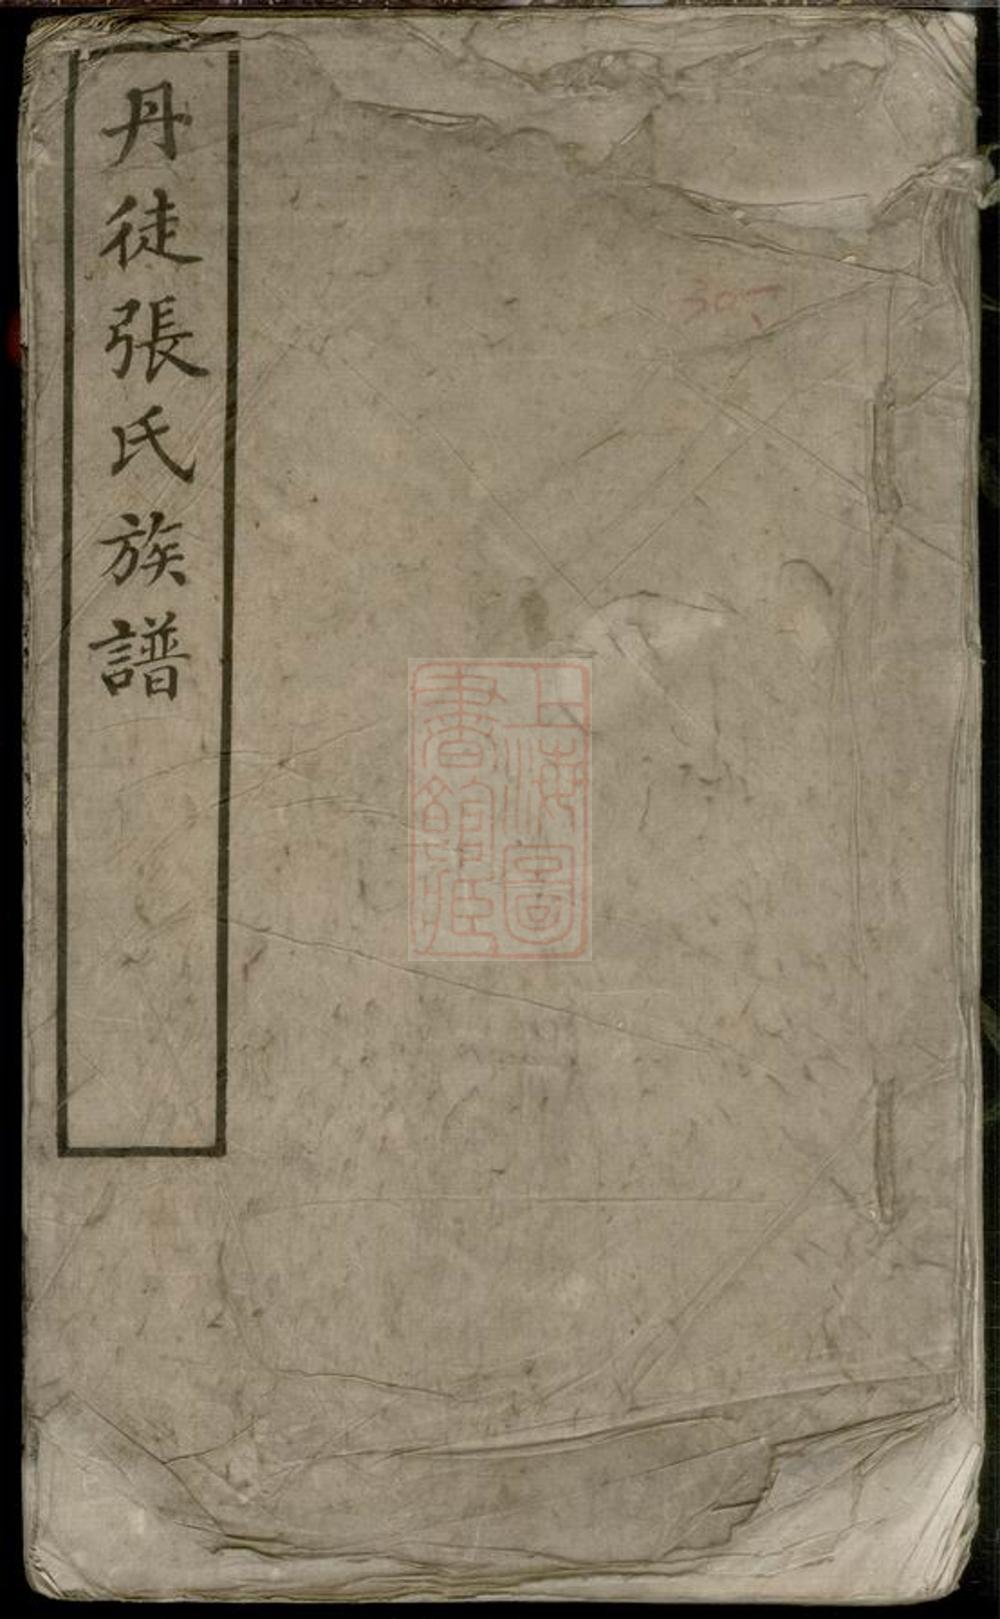 丹徒張氏族譜
上海圖
書館藏
305